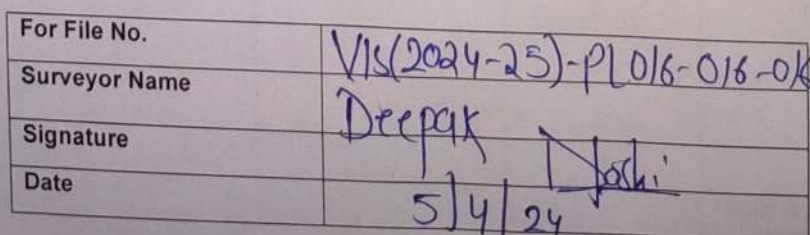 For File No. VIS(2024-25)-PL016-016-
Surveyor Name Deepak
Signature Joshi
Date 5/4/24